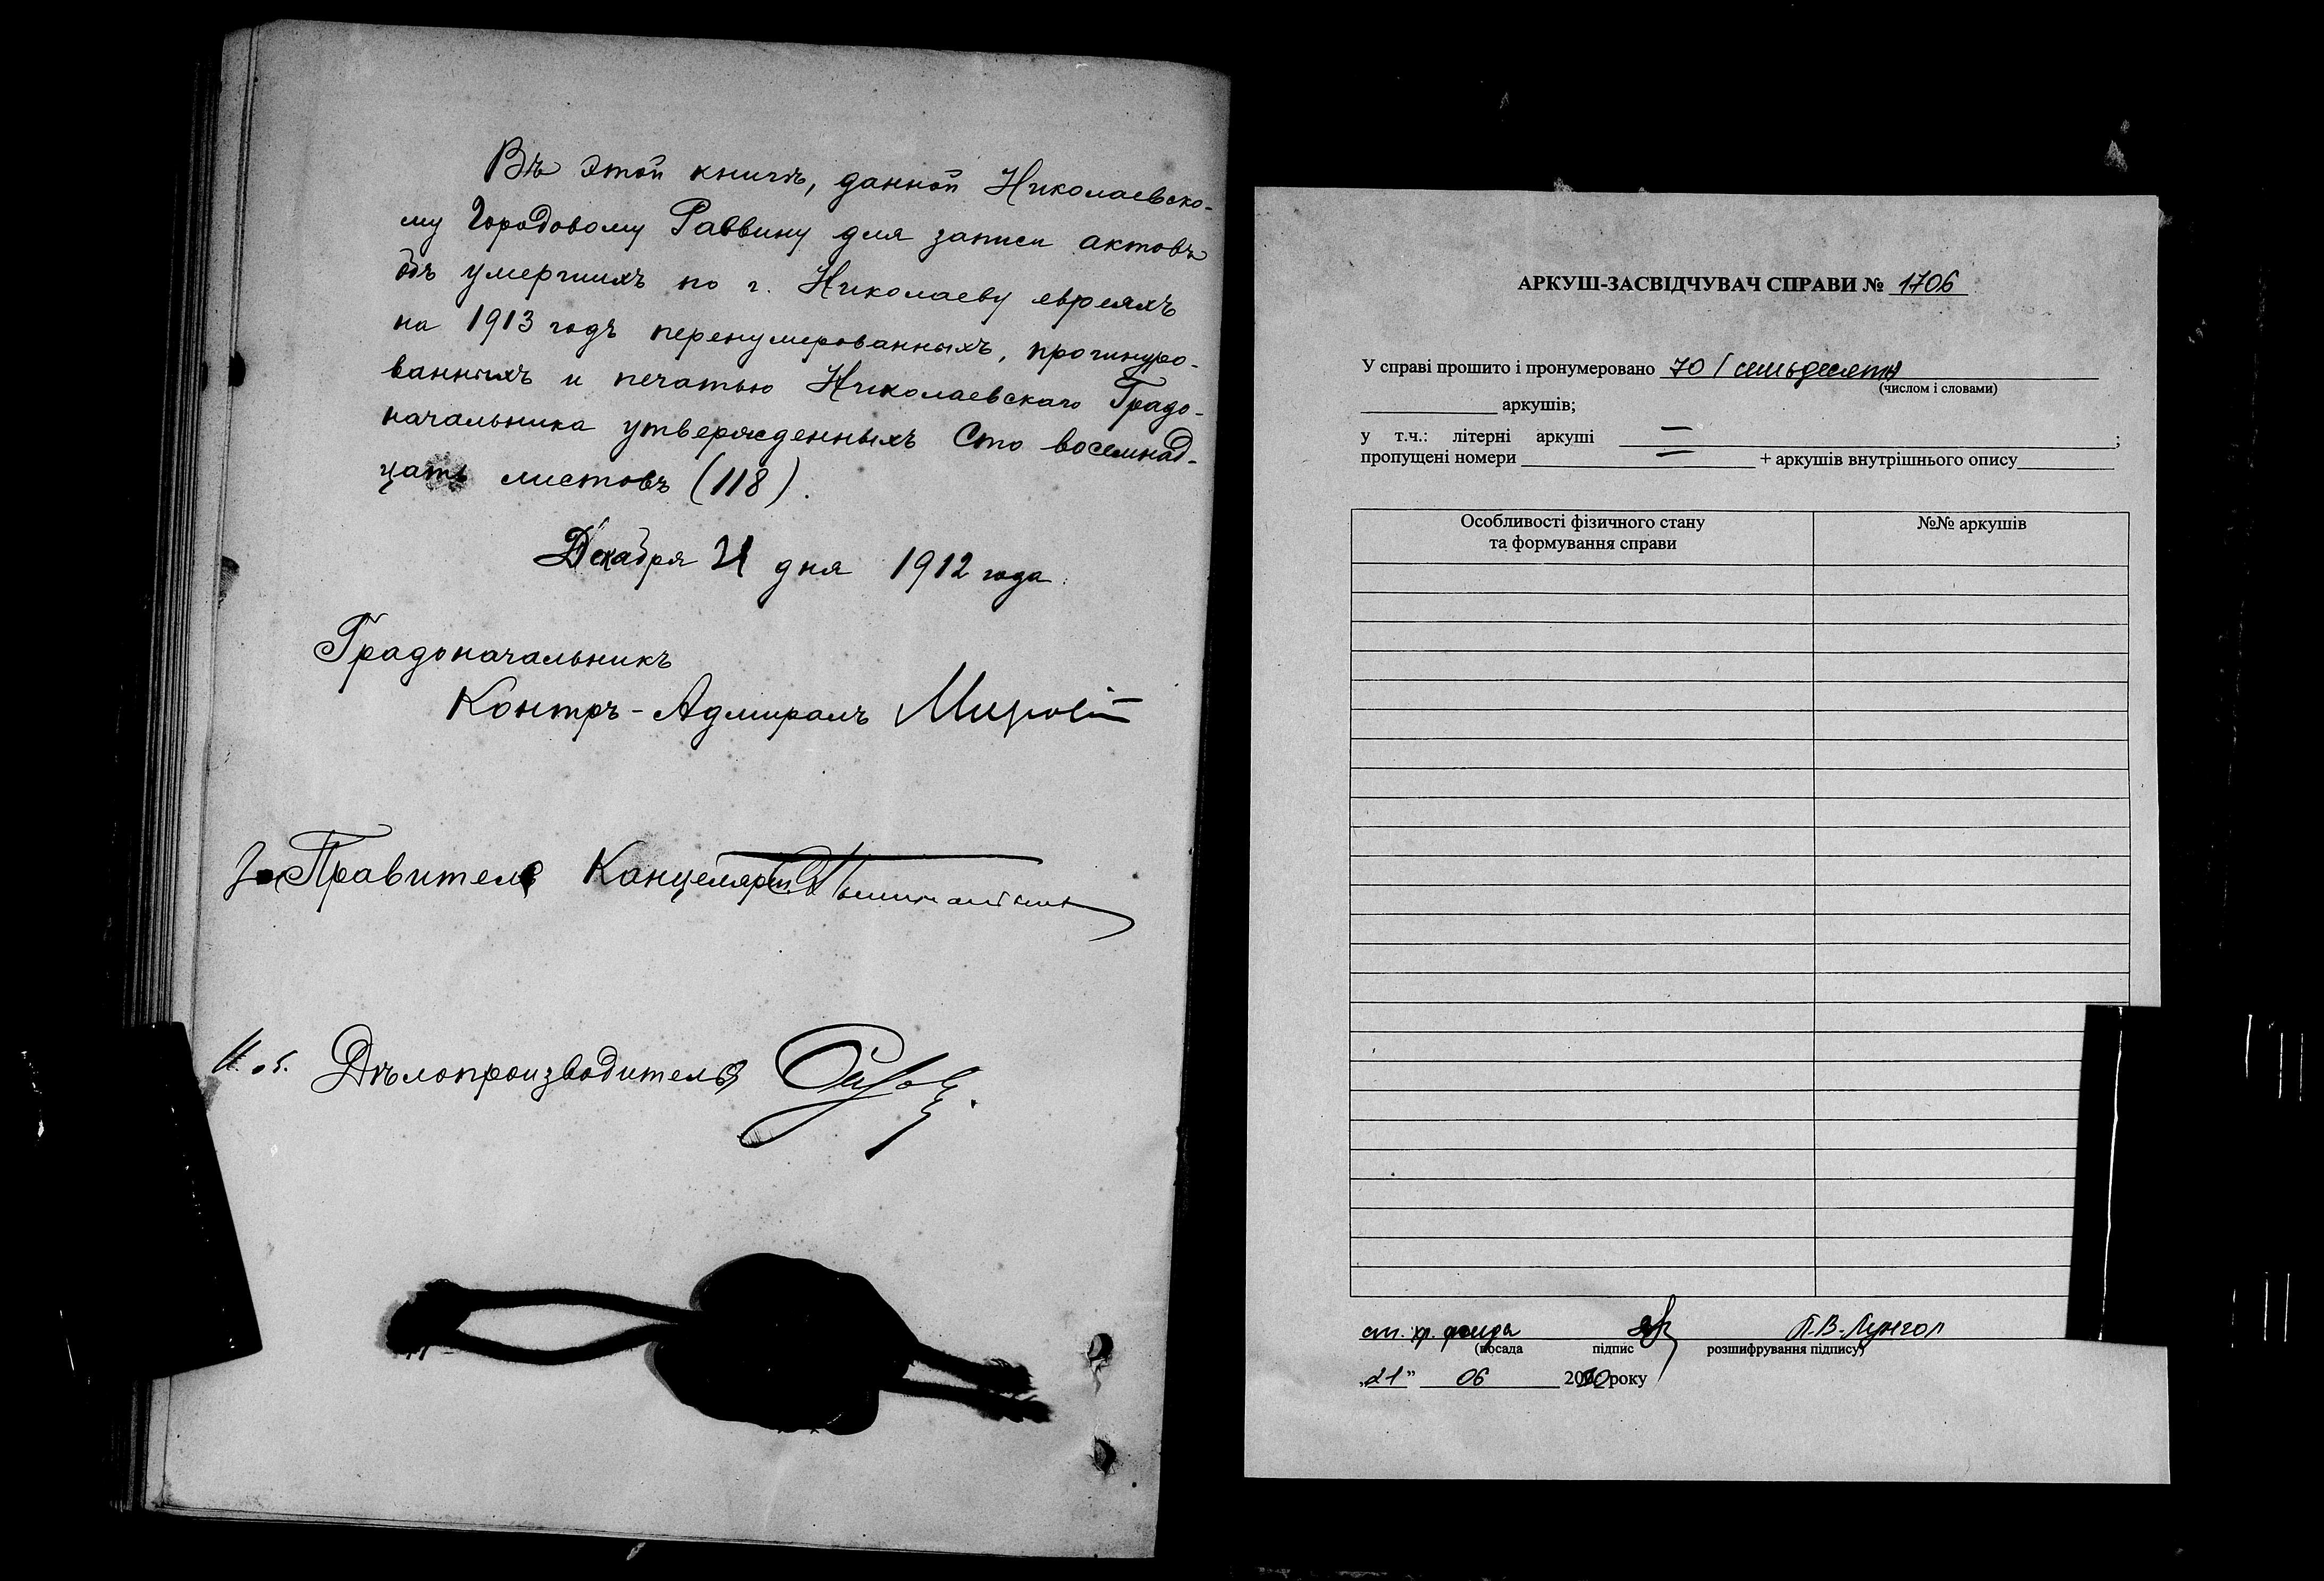 Въ этой книгѣ, данной Николаевско-
му Городовому Раввину для записи актовъ
объ умершихъ по г. Николаеву евреяхъ
на 1913 годъ перенумерованныхъ, прошнуро-
ванныхъ и печатью Николаевскаго Градо-
начальника утвержденныхъ Сто восемнад-
цать листовъ (118).
Декабря 21 дня 1912 года.
Градоначальникъ
Контръ-Адмиралъ
За Правителя Канцеляріи
И. об. Дѣлопроизводителя
АРКУШ-ЗАСВІДЧУВАЧ СПРАВИ № 1706
У справі прошито і пронумеровано 70 / сімьдесят
(числом і словами)
аркушів;
у т.ч.: літерні аркуші — ;
пропущені номери — + аркушів внутрішнього опису
Особливості фізичного стану
та формування справи
№№ аркушів
ст. хр. фонда
(посада підпис розшифрування підпису)
„21” 06 року